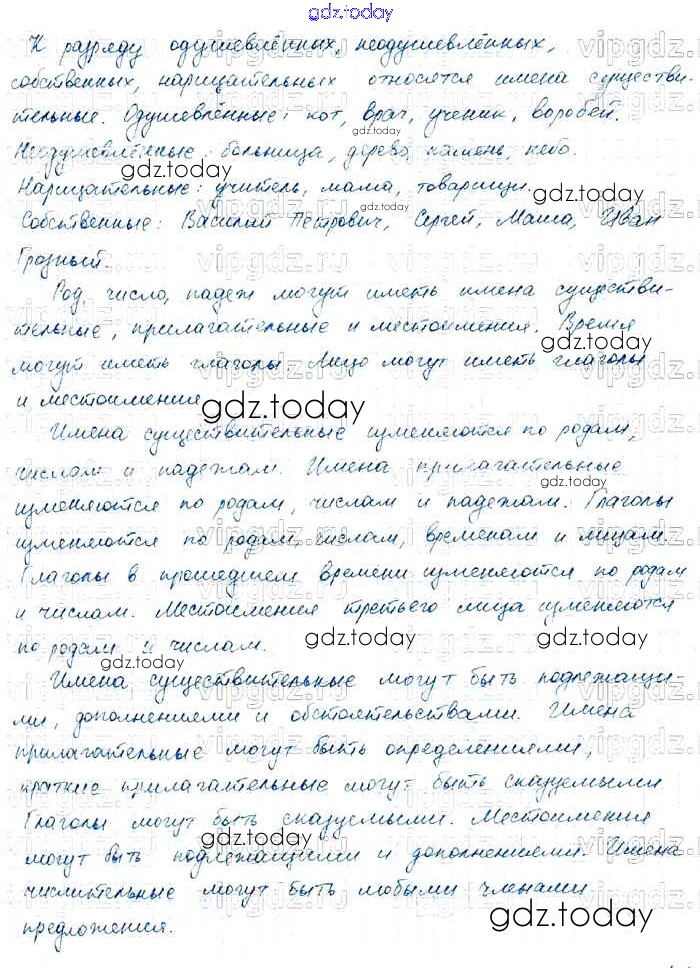 gdz.today
К разряду одушевлённых, неодушевлённых,
собственных, нарицательных относятся имена существи-
тельные. Одушевлённые: кот, врач, ученик, воробей.
Неодушевлённые: больница, дерево, камень, небо.
Нарицательные: учитель, мама, товарищи.
Собственные: Василий Петрович, Сергей, Маша, Иван
Грозный.
Род, число, падеж могут иметь имена существи-
тельные, прилагательные и местоимения. Время
могут иметь глаголы. Лицо могут иметь глаголы
и местоимения.
Имена существительные изменяются по родам,
числам и падежам. Имена прилагательные
изменяются по родам, числам и падежам. Глаголы
изменяются по родам, числам, временам и лицам.
Глаголы в прошедшем времени изменяются по родам
и числам. Местоимения третьего лица изменяются
по родам и числам.
Имена существительные могут быть подлежащи-
ми, дополнениями и обстоятельствами. Имена
прилагательные могут быть определениями,
краткие прилагательные могут быть сказуемыми.
Глаголы могут быть сказуемыми. Местоимения
могут быть подлежащими и дополнениями. Имена
числительные могут быть любыми членами
предложения.